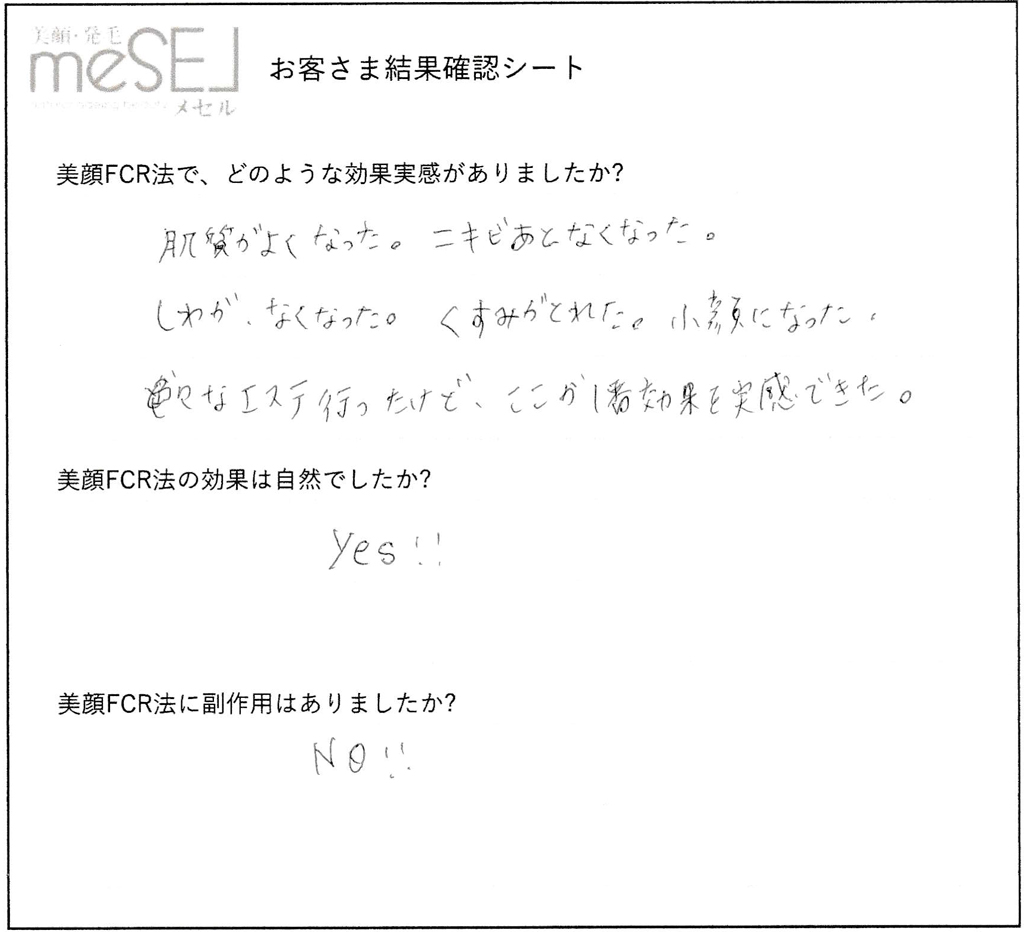 美顔・発毛
meSEL
メセル
お客さま結果確認シート
美顔FCR法で、どのような効果実感がありましたか?
肌質がよくなった。ニキビあとなくなった。
しわが、なくなった。くすみがとれた。小顔になった。
色々なエステ行ったけど、ここが1番効果を実感できた。
美顔FCR法の効果は自然でしたか?
Yes!!
美顔FCR法に副作用はありましたか?
NO!!